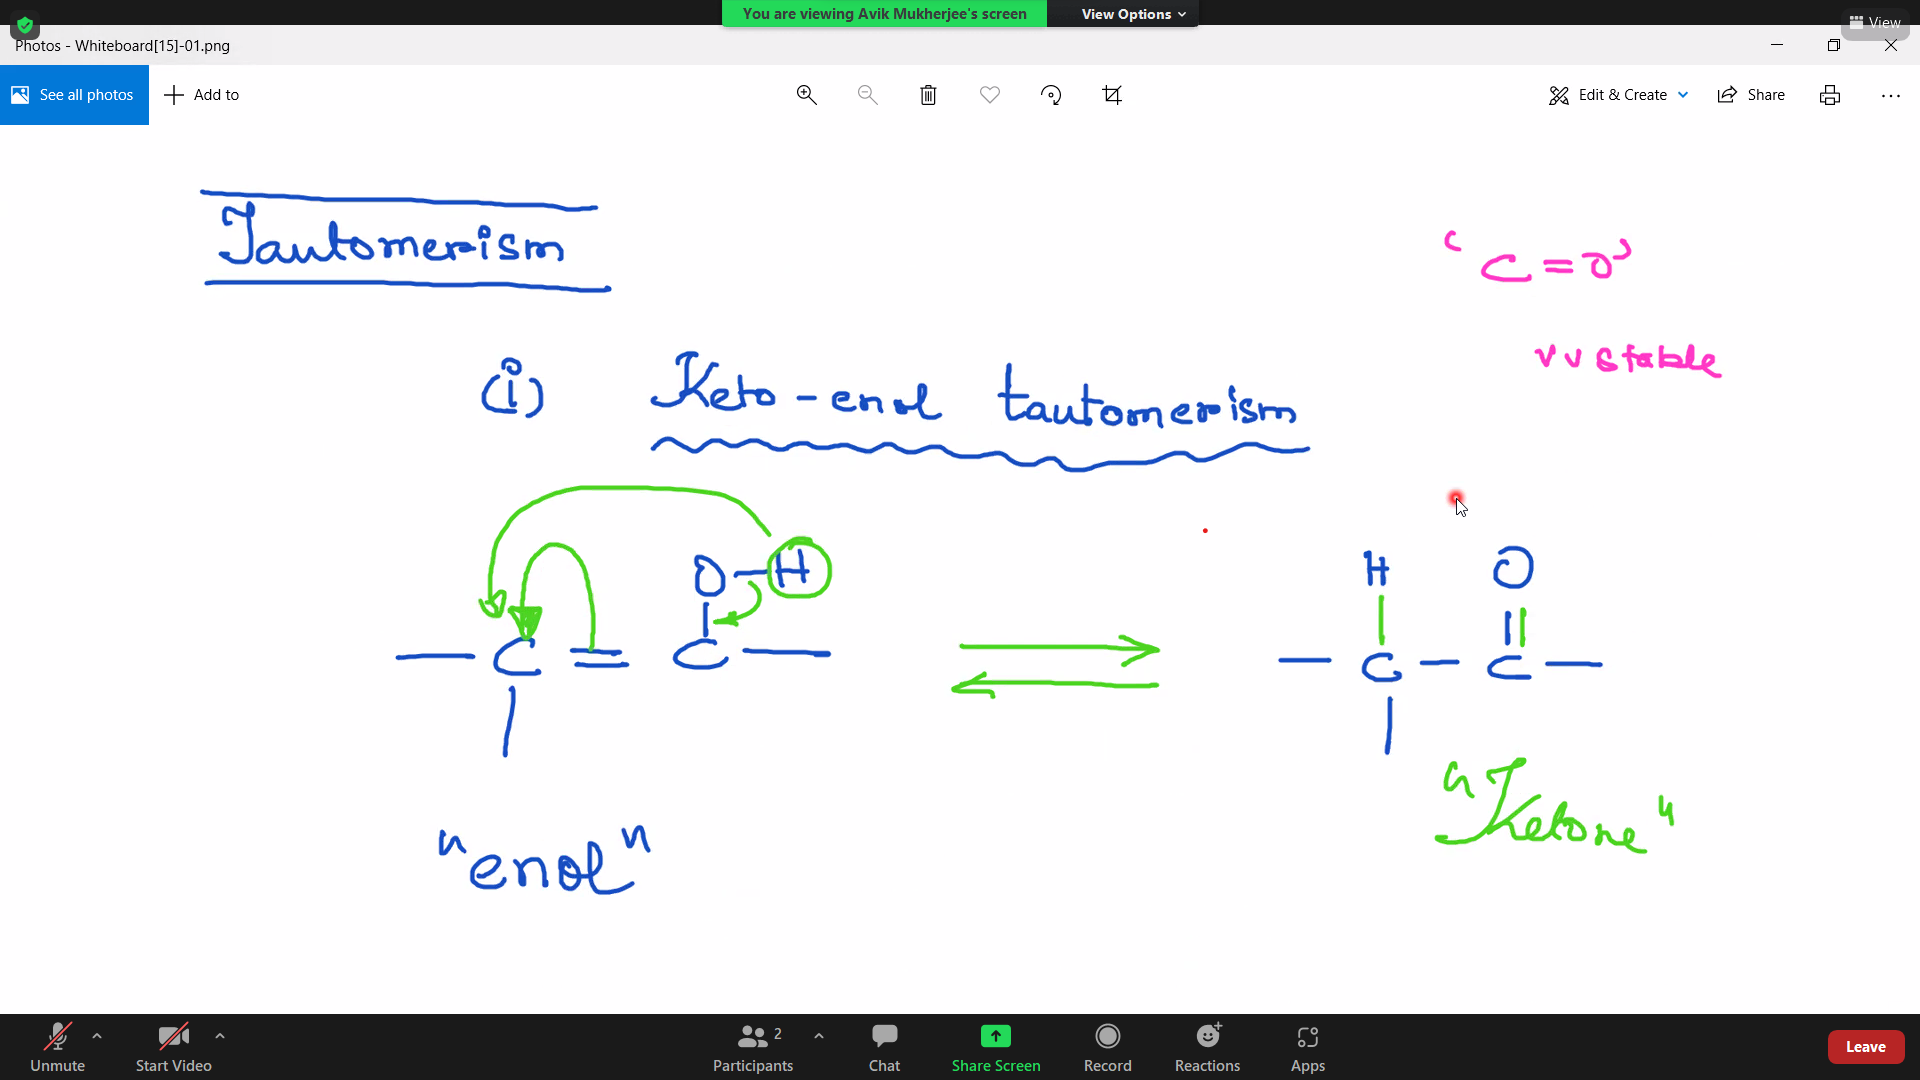 You are viewing Avik Mukherjee's screen View Options
View
Photos - Whiteboard[15]-01.png
See all photos Add to Edit & Create Share
Tautomerism
"C=O"
vv stable
(i) Keto-enol tautomerism
O-H H O
-C=C- -C-C-
"Ketone"
"enol"
Unmute Start Video Participants 2 Chat Share Screen Record Reactions Apps Leave